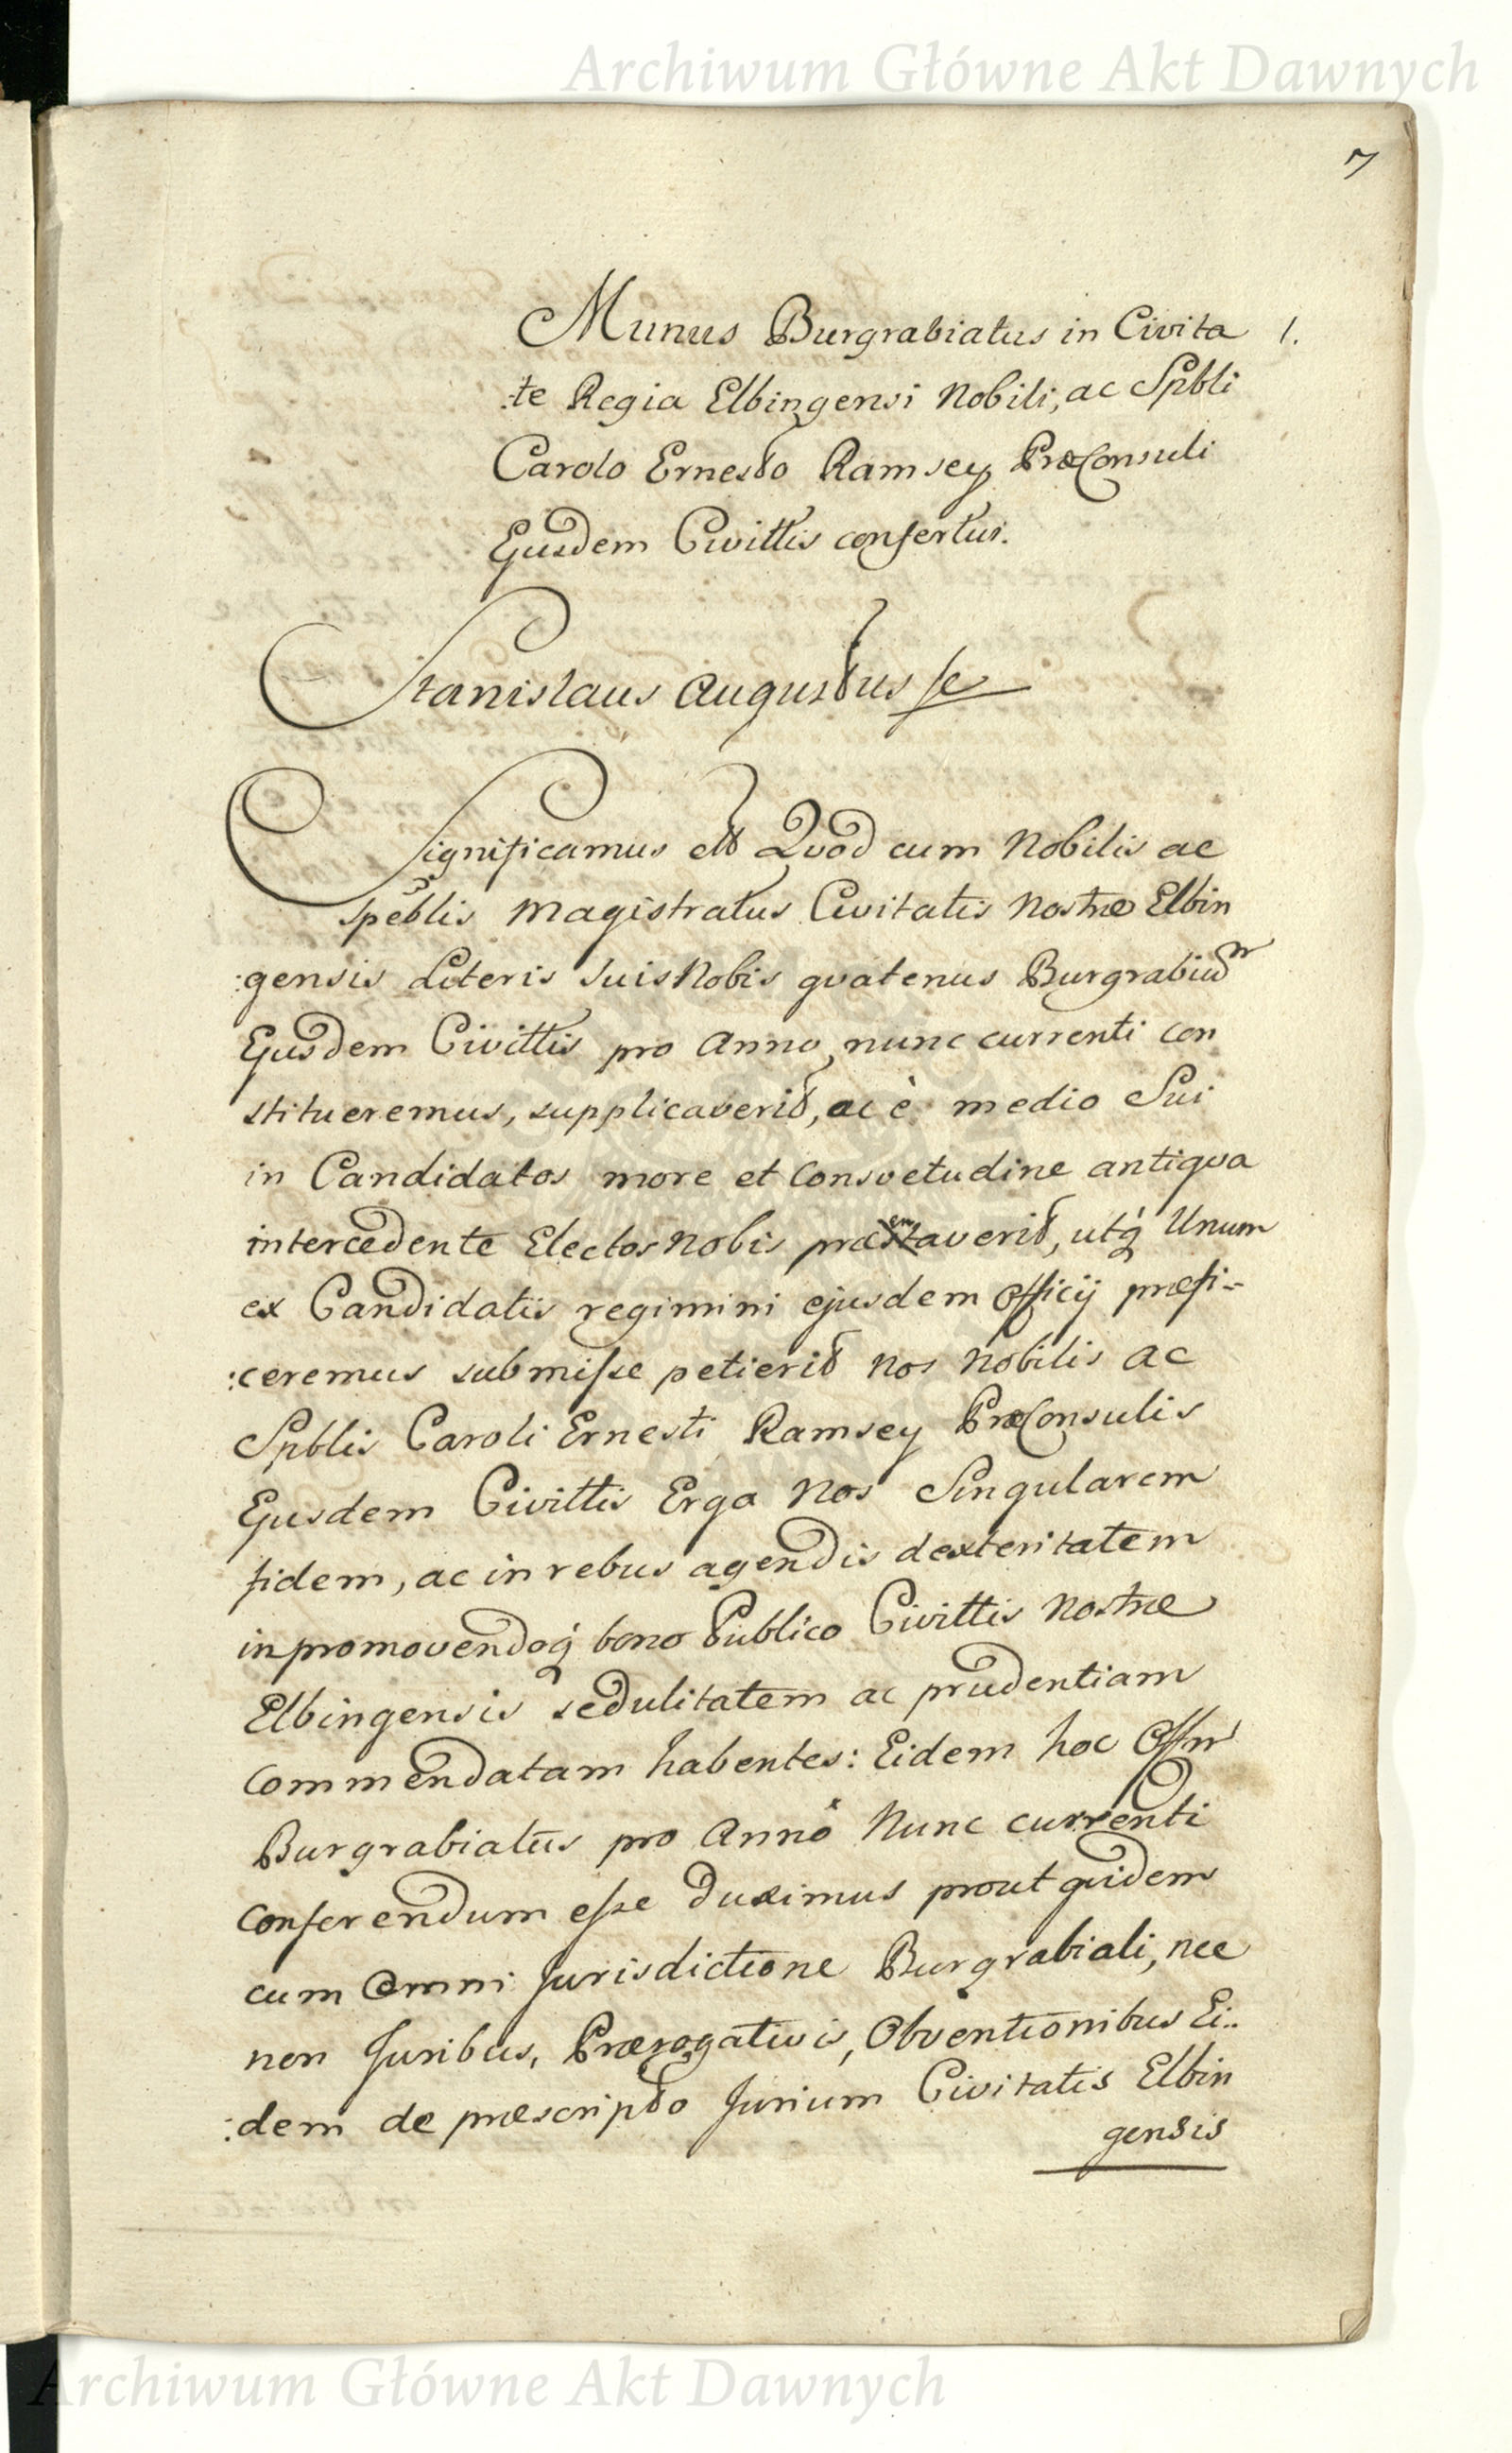 Archiwum Główne Akt Dawnych
7
Munus Burgrabiatus in Civita 1.
:te Regia Elbingensi Nobili, ac Spbli
Carolo Ernesto Ramsey PræConsuli
Ejusdem Civittis confertur.
Stanislaus Augustus
Significamus etts Quod cum Nobilis ac
Speblis Magistratus Civitatis Nostræ Elbin
:gensis Literis suis Nobis quatenus Burgrabium
Ejusdem Civittis pro Anno nunc currenti con
stitueremus, supplicaverit, ac è medio Sui
in Candidatos more et Consvetudine antiqva
intercedente Electos Nobis præsentaverit, utq Unum
ex Candidatis regimini ejusdem Officij præfi-
:ceremus submisse petierit Nos Nobilis ac
Spblis Caroli Ernesti Ramsey PræConsulis
Ejusdem Civittis Erga Nos Singularem
fidem, ac in rebus agendis dexteritatem
in promovendoq bono Publico Civittis Nostræ
Elbingensis sedulitatem ac prudentiam
Commendatam habentes: Eidem hoc Offm
Burgrabiatus pro Anno Nunc currenti
Conferendum esse Duximus prout quidem
cum Omni Jurisdictione Burgrabiali, nec
non Juribus, Prærogativis, Obventionibus Ei..
:dem de præscripto Jurium Civitatis Elbin
gensis
Archiwum Główne Akt Dawnych